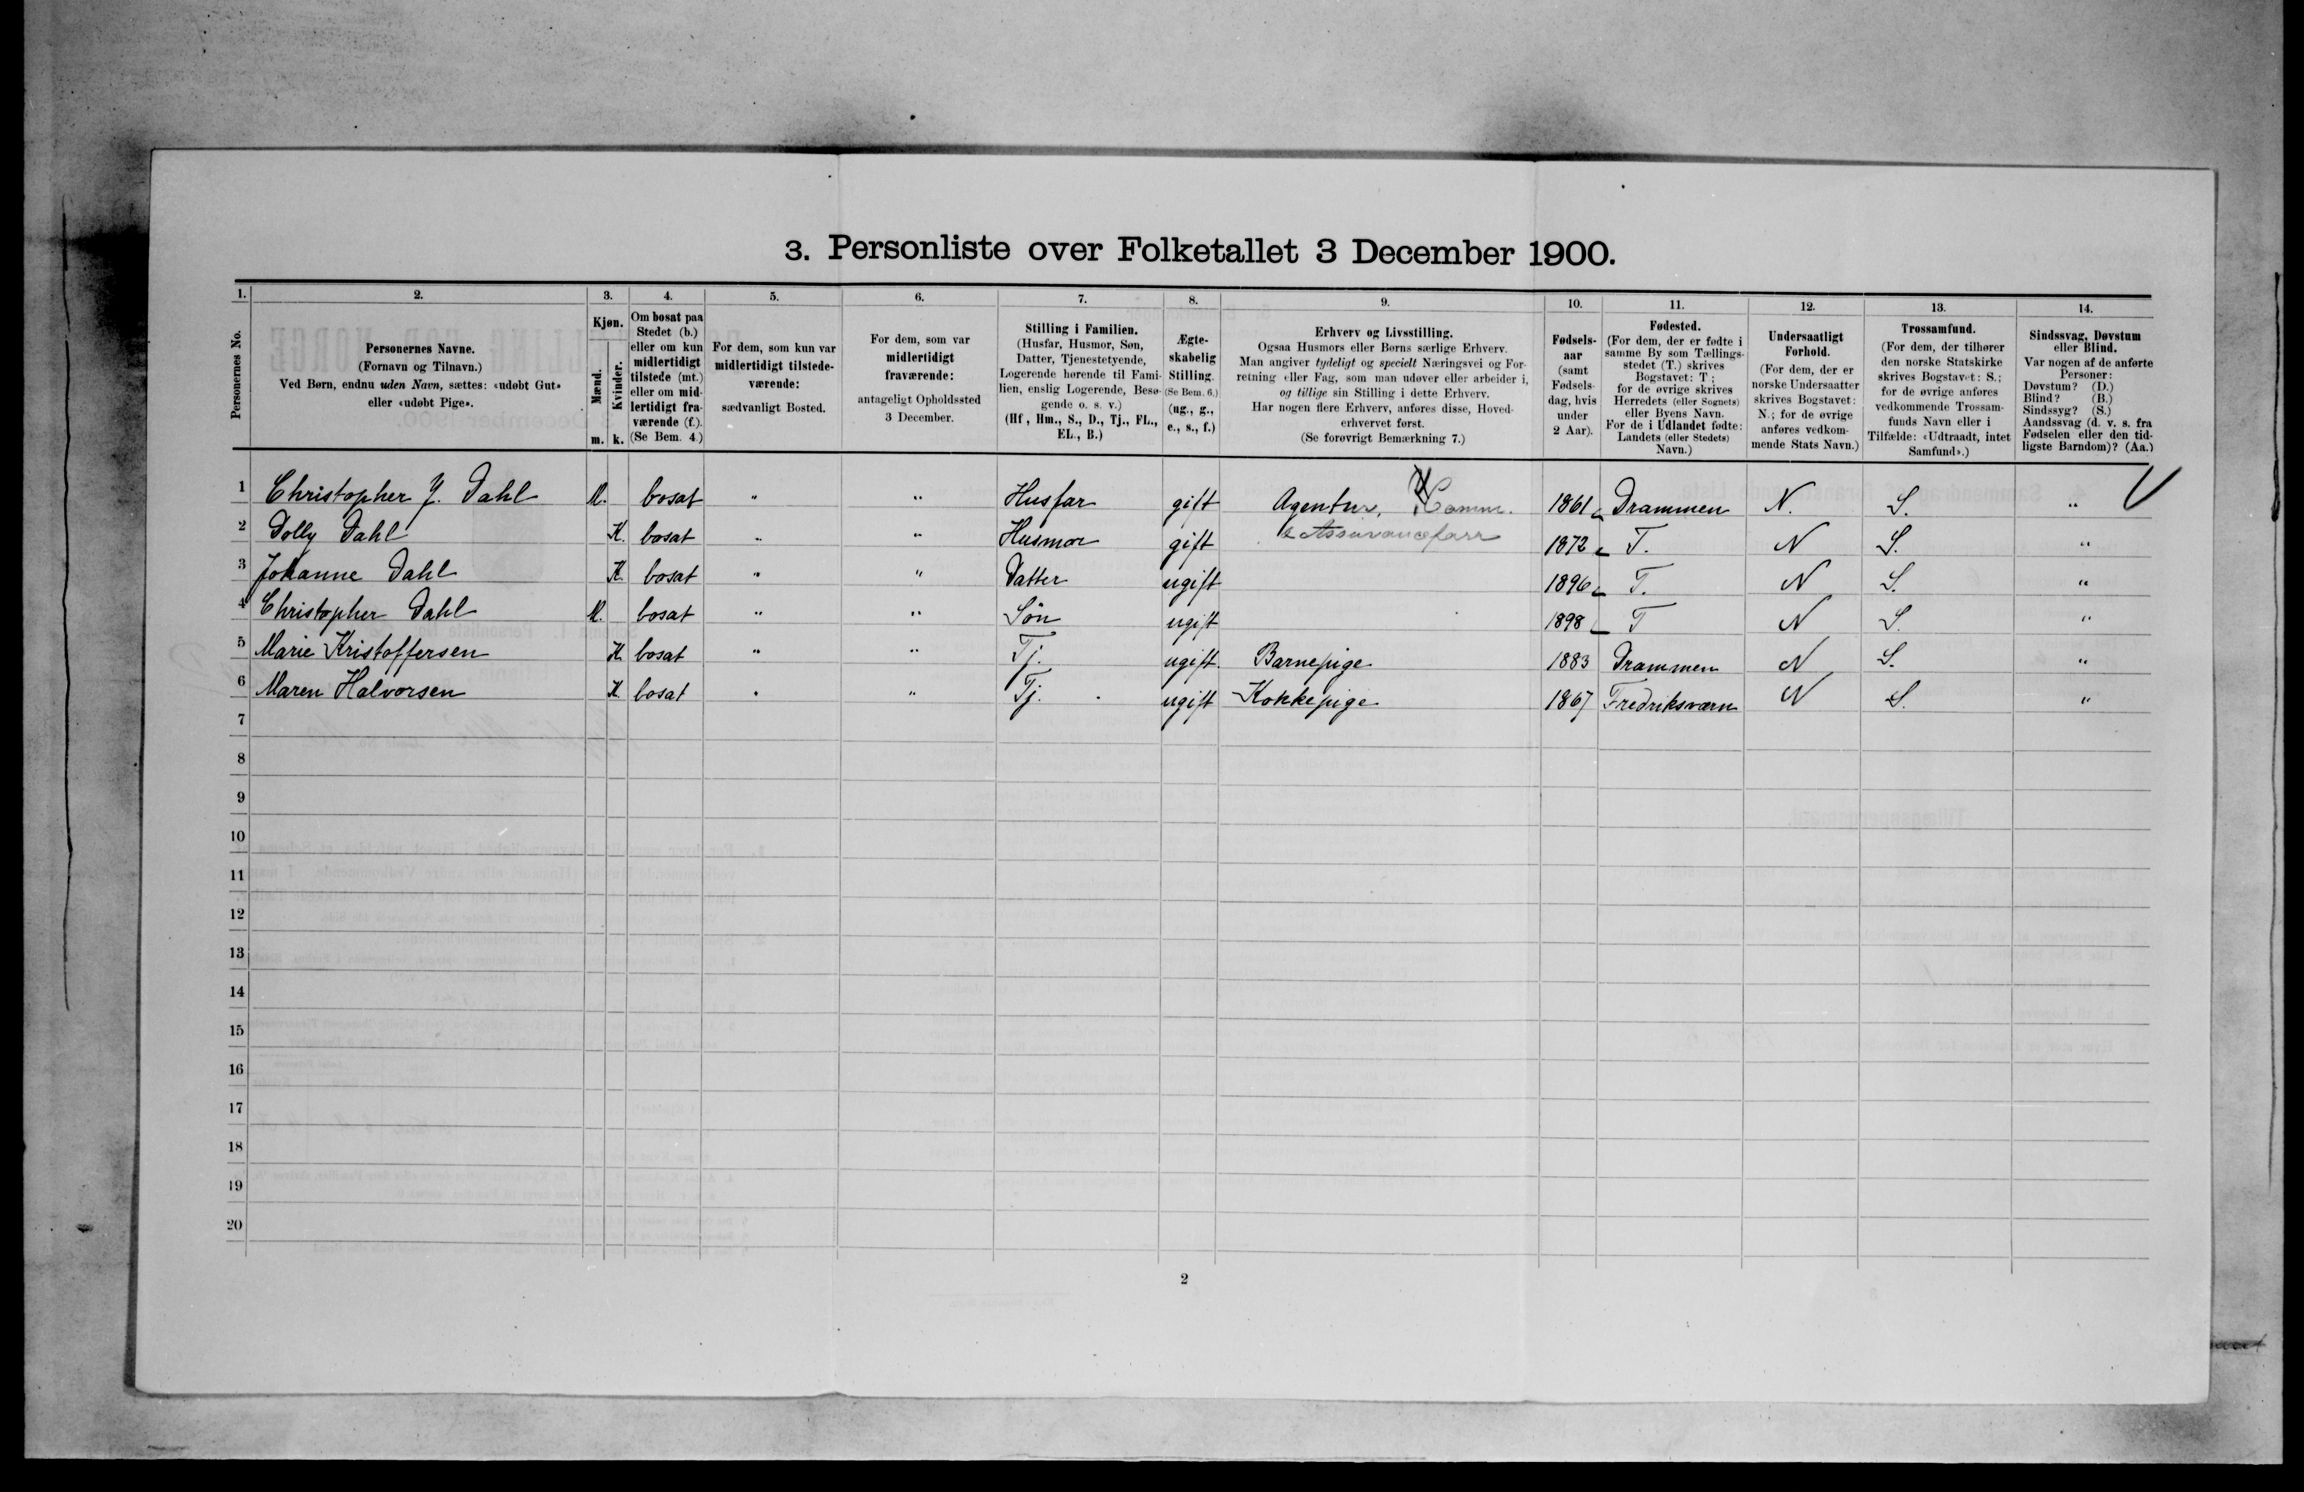 3. Personliste over Folketallet 3 December 1900.
1. 2. 3. 4. 5. 6. 7. 8. 9. 10. 11. 12. 13. 14.
Personernes No.
Personernes Navne.
(Fornavn og Tilnavn.)
Ved Børn, endnu uden Navn, sættes: «udøbt Gut»
eller «udøbt Pige».
Kjøn.
Mænd.
m.
Kvinder.
k.
Om bosat paa
Stedet (b.)
eller om kun
midlertidigt
tilstede (mt.)
eller om mid-
lertidigt fra-
værende (f.).
(Se Bem. 4.)
For dem, som kun var
midlertidigt tilstede-
værende:
sædvanligt Bosted.
For dem, som var
midlertidigt
fraværende:
antageligt Opholdssted
3 December.
Stilling i Familien.
(Husfar, Husmor, Søn,
Datter, Tjenestetyende,
Logerende hørende til Fami-
lien, enslig Logerende, Besø-
gende o. s. v.)
(Hf, Hm., S., D., Tj., FL.,
EL., B.)
Ægte-
skabelig
Stilling.
(Se Bem. 6.)
(ug., g.,
e., s., f.)
Erhverv og Livsstilling.
Ogsaa Husmors eller Børns særlige Erhverv.
Man angiver tydeligt og specielt Næringsvei og For-
retning eller Fag, som man udøver eller arbeider i,
og tillige sin Stilling i dette Erhverv.
Har nogen flere Erhverv, anføres disse, Hoved-
erhvervet først.
(Se forøvrigt Bemærkning 7.)
Fødsels-
aar
(samt
Fødsels-
dag, hvis
under
2 Aar).
Fødested.
(For dem, der er fødte i
samme By som Tællings-
stedet (T.) skrives
Bogstavet: T;
for de øvrige skrives
Herredets (eller Sognets)
eller Byens Navn.
For de i Udlandet fødte:
Landets (eller Stedets)
Navn.)
Undersaatligt
Forhold.
(For dem, der er
norske Undersaatter
skrives Bogstavet:
N.; for de øvrige
anføres vedkom-
mende Stats Navn.)
Trossamfund.
(For dem, der tilhører
den norske Statskirke
skrives Bogstavet: S.;
for de øvrige anføres
vedkommende Trossam-
funds Navn eller i
Tilfælde: «Udtraadt, intet
Samfund».)
Sindssvag, Døvstum
eller Blind.
Var nogen af de anførte
Personer:
Døvstum? (D.)
Blind? (B.)
Sindssyg? (S.)
Aandssvag (d. v. s. fra
Fødselen eller den tid-
ligste Barndom)? (Aa.)
1 Christopher J. Dahl M. bosat " " Husfar gift Agentur, Comm. 1861 Drammen N. S. "
2 Dolly Dahl K. bosat " " Husmor gift & Assuranceforr 1872 T. N S. "
3 Johanne Dahl K. bosat " " Datter ugift 1896 T. N S. "
4 Christopher Dahl M. bosat " " Søn ugift 1898 T N S. "
5 Marie Kristoffersen K. bosat " " Tj. ugift. Barnepige 1883 Drammen N S. "
6 Maren Halvorsen K. bosat " " Tj. ugift Kokkepige 1867 Fredriksværn N S. "
7
8
9
10
11
12
13
14
15
16
17
18
19
20
2